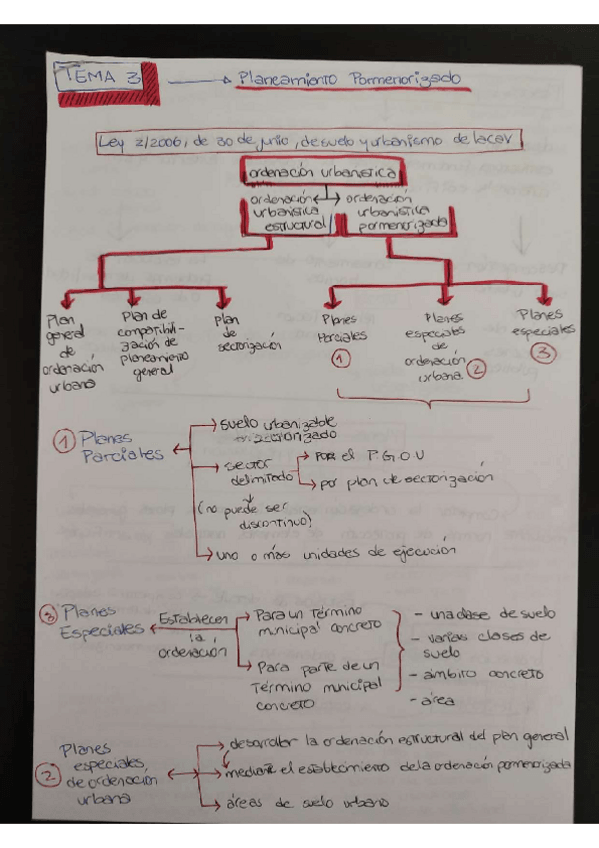 TEMA 3
Planeamiento Pormenorizado
Ley 2/2006, de 30 de junio, de suelo y urbanismo de la CAV
ordenación urbanística
ordenación urbanística estructural
ordenación urbanística pormenorizada
Plan general de ordenación urbana
Plan de compatibilización de planeamiento general
Plan de sectorización
Planes Parciales
1
Planes especiales de ordenación urbana
2
Planes especiales
3
1 Planes Parciales
suelo urbanizable
sectorizado
sector delimitado
por el P.G.O.U
por plan de sectorización
(no puede ser discontinuo)
uno o más unidades de ejecución
3 Planes Especiales
Establecen la ordenación
Para un Término municipal concreto
Para parte de un Término municipal concreto
- una clase de suelo
- varias clases de suelo
- ámbito concreto
- área
2 Planes especiales de ordenación urbana
desarrollar la ordenación estructural del plan general
mediante el establecimiento de la ordenación pormenorizada
áreas de suelo urbano